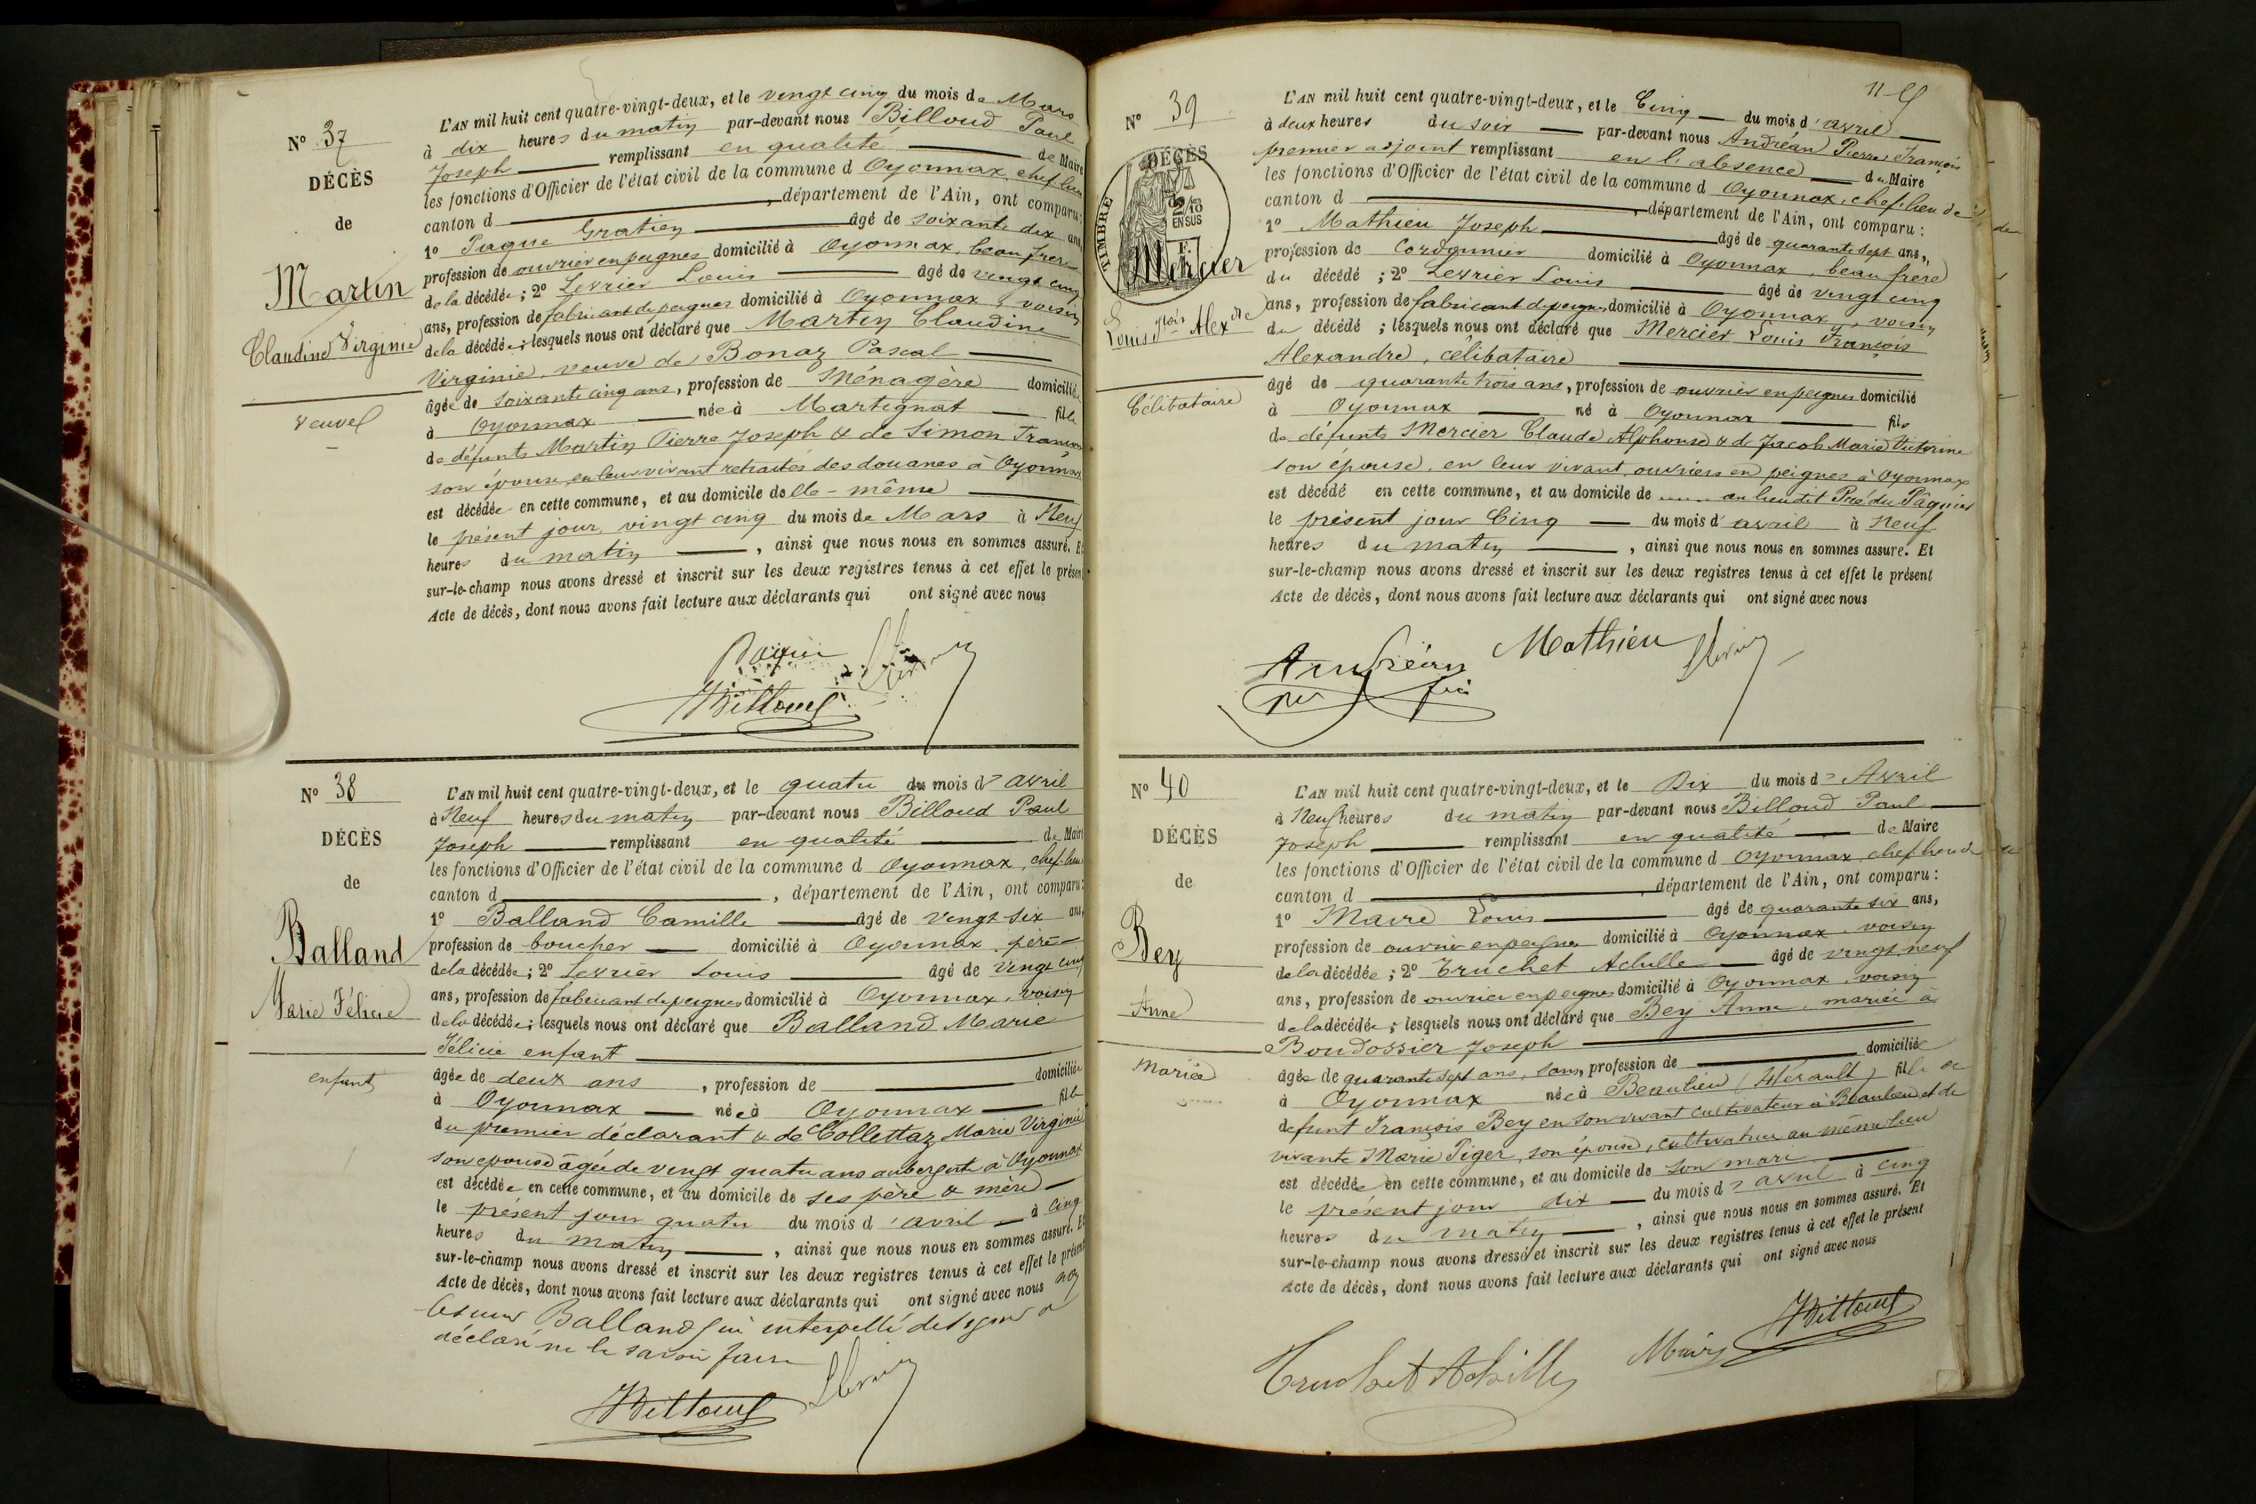 N° 37
DÉCÈS
de
Martin
Claudine Virginie
veuve
L'AN mil huit cent quatre-vingt-deux, et le vingt cinq du mois de Mars
à dix heures du matin par-devant nous Billoud Paul
Joseph remplissant en qualité de Maire
les fonctions d'Officier de l'état civil de la commune d Oyonnax, chef lieu
canton d , département de l'Ain, ont comparu:
1° Gratien âgé de soixante dix ans
profession de ouvrier en peignes domicilié à Oyonnax, beau frere
de la décédée; 2° Levrier Louis âgé de vingt cinq
ans, profession de fabricant de peignes domicilié à Oyonnax, voisin
de la décédée; lesquels nous ont déclaré que Martin Claudine
Virginie, veuve de Bonaz Pascal
âgée de soixante cinq ans, profession de Ménagère domiciliée
à Oyonnax née à Martignat fille
de défunts Martin Pierre Joseph & de Simon
son épouse, en leur vivant retraités des douanes à Oyonnax
est décédée en cette commune, et au domicile de elle-même
le présent jour, vingt cinq du mois de Mars à Neuf
heures du matin , ainsi que nous nous en sommes assuré. Et
sur-le-champ nous avons dressé et inscrit sur les deux registres tenus à cet effet le présent
Acte de décès, dont nous avons fait lecture aux déclarants qui ont signé avec nous
Billoud
N° 38
DÉCÈS
de
Balland
Marie Félicie
enfant
L'AN mil huit cent quatre-vingt-deux, et le quatre du mois d'avril
à Neuf heures du matin par-devant nous Billoud Paul
Joseph remplissant en qualité de Maire
les fonctions d'Officier de l'état civil de la commune d Oyonnax, chef lieu
canton d , département de l'Ain, ont comparu:
1° Balland Camille âgé de vingt six ans,
profession de boucher domicilié à Oyonnax, père
de la décédée; 2° Levrier Louis âgé de vingt cinq
ans, profession de fabricant de peignes domicilié à Oyonnax, voisin
de la décédée; lesquels nous ont déclaré que Balland Marie
Félicie enfant
âgée de deux ans, profession de domiciliée
à Oyonnax née à Oyonnax fille
du premier déclarant & de Collettaz Marie Virginie
son épouse âgée de vingt quatre ans aubergiste à Oyonnax
est décédée en cette commune, et au domicile de ses père & mère
le présent jour quatre du mois d'avril à cinq
heures du matin , ainsi que nous nous en sommes assuré. Et
sur-le-champ nous avons dressé et inscrit sur les deux registres tenus à cet effet le présent
Acte de décès, dont nous avons fait lecture aux déclarants qui ont signé avec nous non
le sieur Balland qui interpellé de signer a
déclaré ne le savoir faire
Billoud
115
N° 39
DÉCÈS
de
TIMBRE
2/10
EN SUS
Mercier
Louis Alex
Célibataire
L'AN mil huit cent quatre-vingt-deux, et le Cinq du mois d'avril
à deux heures du soir par-devant nous Andréan Pierre François
premier adjoint remplissant en l'absence du Maire
les fonctions d'Officier de l'état civil de la commune d Oyonnax, chef lieu de
canton d , département de l'Ain, ont comparu:
1° Mathieu Joseph âgé de quarante sept ans,
profession de Cordonnier domicilié à Oyonnax, beau frere
du décédé; 2° Levrier Louis âgé de vingt cinq
ans, profession de fabricant de peignes domicilié à Oyonnax, voisin
du décédé; lesquels nous ont déclaré que Mercier Louis François
Alexandre, célibataire
âgé de quarante trois ans, profession de ouvrier en peignes domicilié
à Oyonnax né à Oyonnax fils
de défunts Mercier Claude Alphonse & de Jacob Marie Victorine
son épouse, en leur vivant ouvriers en peignes à Oyonnax
est décédé en cette commune, et au domicile de au lieu dit Pré du Pâquier
le présent jour Cinq du mois d'avril à Neuf
heures du matin , ainsi que nous nous en sommes assuré. Et
sur-le-champ nous avons dressé et inscrit sur les deux registres tenus à cet effet le présent
Acte de décès, dont nous avons fait lecture aux déclarants qui ont signé avec nous
Andréan Mathieu
N° 40
DÉCÈS
de
Bey
Anne
Mariée
L'AN mil huit cent quatre-vingt-deux, et le Dix du mois d'Avril
à Neuf heures du matin par-devant nous Billoud Paul
Joseph remplissant en qualité de Maire
les fonctions d'Officier de l'état civil de la commune d Oyonnax, chef lieu de
canton d , département de l'Ain, ont comparu:
1° Maire Louis âgé de quarante six ans,
profession de ouvrier en peignes domicilié à Oyonnax, voisin
de la décédée; 2° Truchet Achille âgé de vingt neuf
ans, profession de ouvrier en peignes domicilié à Oyonnax, voisin
de la décédée; lesquels nous ont déclaré que Bey Anne, mariée à
Boudossier Joseph
âgée de quarante sept ans, sans, profession de domiciliée
à Oyonnax née à Beaulieu (Hérault) fille de
defunt François Bey en son vivant cultivateur à Beaulieu et de
vivante Marie Piger, son épouse, cultivatrice au même lieu
est décédée en cette commune, et au domicile de son mari
le présent jour dix du mois d'avril à cinq
heures du matin , ainsi que nous nous en sommes assuré. Et
sur-le-champ nous avons dressé et inscrit sur les deux registres tenus à cet effet le présent
Acte de décès, dont nous avons fait lecture aux déclarants qui ont signé avec nous
Billoud
Truchet Achille